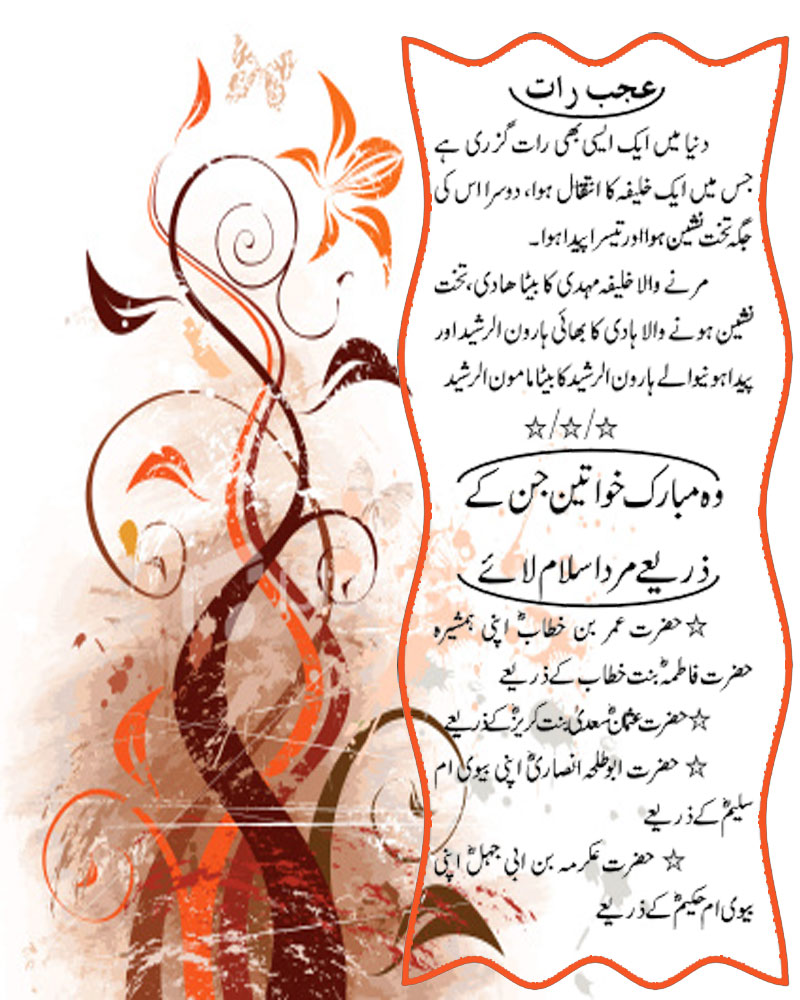 عجب رات
دنیا میں ایک ایسی بھی رات گزری ہے
جس میں ایک خلیفہ کا انتقال ہوا، دوسرا اس کی
جگہ تخت نشین ہوا اور تیسرا پیدا ہوا۔
مرنے والا خلیفہ مہدی کا بیٹا ھادی، تخت
نشین ہونے والا ہادی کا بھائی ہارون الرشید اور
پیدا ہونیوالے ہارون الرشید کا بیٹا مامون الرشید
☆/☆/☆
وہ مبارک خواتین جن کے
ذریعے مرد اسلام لائے
☆ حضرت عمر بن خطابؓ اپنی ہمشیرہ
حضرت فاطمہؓ بنت خطاب کے ذریعے
☆ حضرت عثمانؓ سعدیٰ بنت کریزؓ کے ذریعے
☆ حضرت ابوطلحہ انصاریؓ اپنی بیوی ام
سلیمؓ کے ذریعے
☆ حضرت عکرمہ بن ابی جہلؓ اپنی
بیوی ام حکیمؓ کے ذریعے